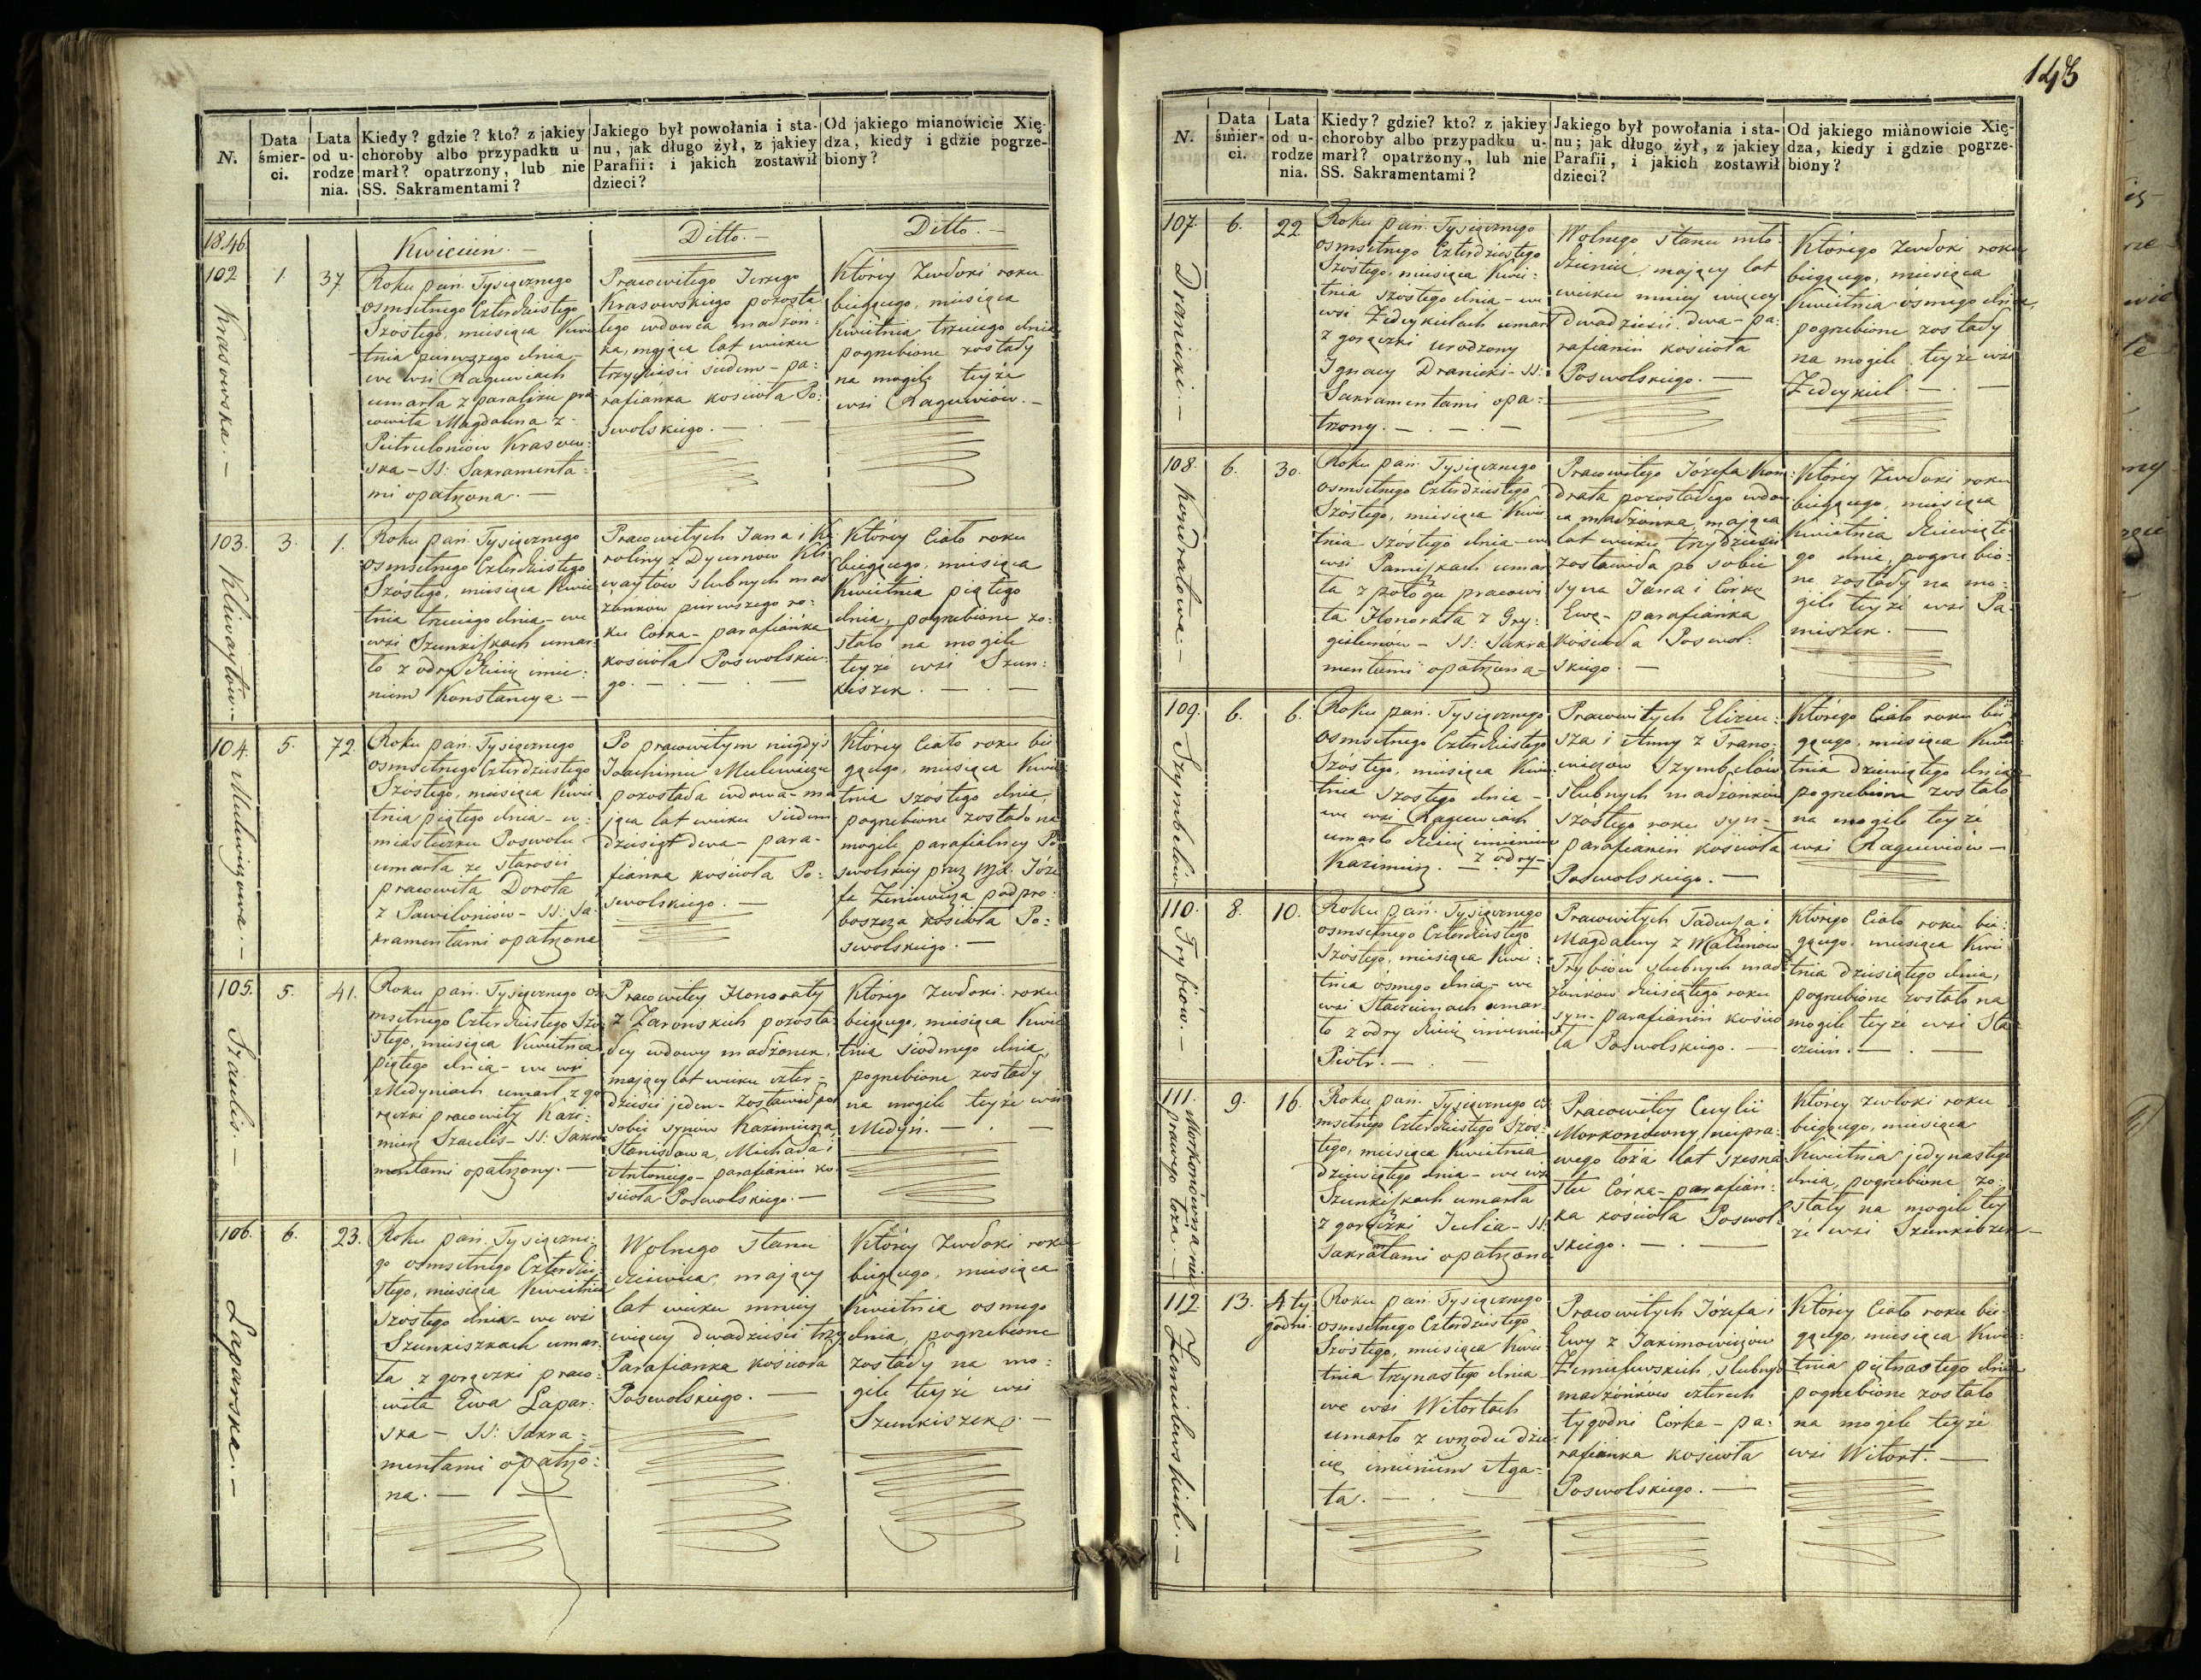 N.
Data
śmier-
ci.
Lata
od u-
rodze
nia.
Kiedy? gdzie? kto? z jakiey
choroby albo przypadku u-
marł? opatrzony, lub nie
SS. Sakramentami?
Jakiego był powołania i sta-
nu, jak długo żył, z jakiey
Parafii: i jakich zostawił
dzieci?
Od jakiego mianowicie Xię-
dza, kiedy i gdzie pogrze-
biony?
1846.
Kwiecień. —
Ditto. —
Ditto. —
102
Krasowska. —
1
37
Roku pań. Tysiącznego
osmsetnego Czterdziestego
Szóstego, miesiąca Kwie
tnia pierwszego dnia —
we wsi Raguwiach
umarła z paraliżu pra
cowita Magdalena z
Pietruloniów Krasow:
ska — SS: Sakramenta:
mi opatrzona. —
Pracowitego Jerzego
Krasowskiego pozosta
łego wdowca małżon:
ka, mająca lat wieku
trzydzieści siedem — pa:
rafianka kościoła Po:
swolskiego. —
Którey Zwłoki roku
biegącego, miesiąca
Kwietnia trzeciego dnia
pogrzebione zostały
na mogile teyże
wsi Raguwiów. —
103.
Kliwaytów. —
3.
1.
Roku pań. Tysiącznego
osmsetnego Czterdziestego
Szóstego, miesiąca Kwie
tnia trzeciego dnia — we
wsi Szunkiszkach umar:
ło z odry dziecię imie:
niem Konstancya. —
Pracowitych Jana i Ka
roliny z Dyurnow Kli
waytów ślubnych mał
żonków pierwszego ro:
ku Córka — parafianka
kościoła Poswolskie:
go. —
Którey Ciało roku
biegącego, miesiąca
Kwietnia piątego
dnia, pogrzebione zo:
stało na mogile
teyże wsi Szun:
kiszek. —
104.
Mulewiczowa. —
5.
72.
Roku pań. Tysiącznego
osmsetnego Czterdziestego
Szóstego, miesiąca Kwie
tnia piątego dnia — w:
miasteczku Poswolu
umarła ze starości
pracowita Dorota
z Pawiloniów — SS: Sa:
kramentami opatrzona
Po pracowitym niegdyś
Joachimie Mulewiczu
pozostała wdowa — ma
jąca lat wieku siedem
dziesiąt dwa — para-
fianka kościoła Po:
swolskiego. —
Którey Ciało roku bie
gącego, miesiąca Kwie
tnia szóstego dnia,
pogrzebione zostało na
mogile parafialney Po
swolskiey przez Józe
fa Zeniewicza podpro:
boszcza kościoła Po:
swolskiego. —
105.
Szaulis. —
5.
41.
Roku pań. Tysiącznego os
msetnego Czterdziestego Szó
stego, miesiąca Kwietnia
piątego dnia — we wsi
Medyniach umarł z go
rączki pracowity Kazi:
mierz Szaulis — SS: Sakra
mentami opatrzony. —
Pracowitey Honoraty
z Żarońskich pozosta:
łey wdowy małżonek,
mający lat wieku czter-
dzieści jeden — Zostawił po
sobie synów Kazimierza,
Stanisława, Michała i
Antoniego — parafianin ko:
ścioła Poswolskiego. —
Którego Zwłoki roku
biegącego, miesiąca Kwie
tnia siódmego dnia,
pogrzebione zostały
na mogile teyże wsi
Medyn. —
106.
Łaparska. —
6.
23.
Roku pań. Tysiączne:
go osmsetnego Czterdzie:
stego, miesiąca Kwietnia
szóstego dnia — we wsi
Szunkiszkach umar:
ła z gorączki praco:
wita Ewa Łapar:
ska — SS: Sakra:
mentami opatrzo:
na. —
Wolnego stanu
dziewica, mający
lat wieku mniey
więcey dwadzieści trzy
Parafianka kościoła
Poswolskiego. —
Którey Zwłoki roku
biegącego, miesiąca
Kwietnia osmego
dnia, pogrzebione
zostały na mo:
gile teyże wsi
Szunkiszek. —
143
N.
Data
śmier-
ci.
Lata
od u-
rodze
nia.
Kiedy? gdzie? kto? z jakiey
choroby albo przypadku u-
marł? opatrzony, lub nie
SS. Sakramentami?
Jakiego był powołania i sta-
nu; jak długo żył, z jakiey
Parafii, i jakich zostawił
dzieci?
Od jakiego mianowicie Xię-
dza, kiedy i gdzie pogrze-
biony?
107.
Dranicki. —
6.
22
Roku pań. Tysiącznego
osmsetnego Czterdziestego
Szóstego, miesiąca Kwie:
tnia szóstego dnia — we
wsi Zedeykielach umarł
z gorączki urodzony
Ignacy Dranicki — SS:
Sakramentami opa:
trzony. —
Wolnego stanu mło:
dzieniec, mający lat
wieku mniey więcey
dwadzieście dwa — pa:
rafianin kościoła
Poswolskiego. —
Którego Zwłoki roku
biegącego, miesiąca
Kwietnia ósmego dnia,
pogrzebione zostały
na mogile teyże wsi
Zedeykiel. —
108.
Kondratowa. —
6.
30.
Roku pań. Tysiącznego
osmsetnego Czterdziestego
Szóstego, miesiąca Kwie
tnia szóstego dnia — we
wsi Pamiszkach umar
ła z połogu pracowi
ta Honorata z Gry:
gieliunów — SS: Sakra
mentami opatrzona —
Pracowitego Józefa Kon:
drata pozostałego wdow
ca małżonka, mająca
lat wieku trzydzieści
zostawiła po sobie
syna Jana i Córkę
Ewę — parafianka
kościoła Poswol:
skiego. —
Którey Zwłoki roku
biegącego, miesiąca
Kwietnia dziewięte
go dnia, pogrzebio:
ne zostały na mo:
gile teyże wsi Pa:
miszek. —
109.
Szymbelów
6.
6.
Roku pań. Tysiącznego
Osmsetnego Czterdziestego
Szóstego, miesiąca Kwie
tnia szóstego dnia —
we wsi Raguwiach
umarło dziecię imieniem
Kazimierz. — z odry —
Pracowitych Elizeu:
sza i Anny z Frano:
wiczów Szymbelów
ślubnych małżonków
szóstego roku syn —
parafianin kościoła
Poswolskiego. —
Którego Ciało roku bie
gącego, miesiąca Kwie
tnia dziewiątego dnia
pogrzebione zostało
na mogile teyże
wsi Raguwiów —
110.
Trybiów. —
8.
10.
Roku pań. Tysiącznego
osmsetnego Czterdziestego
Szóstego, miesiąca Kwie:
tnia ósmego dnia — we
wsi Staczunach umar
ło z odry dziecię imieniem
Piotr. —
Pracowitych Tadeusza i
Magdaleny z Walunów
Trybiów ślubnych mał
żonków dziesiątego roku
syn — parafianin kościo
ła Poswolskiego. —
Którego Ciało roku bie:
gącego, miesiąca Kwie
tnia dziesiątego dnia,
pogrzebione zostało na
mogile teyże wsi Sta
czun. —
111.
Morkonówna nie
prawego łoża. —
9.
16.
Roku pań. Tysiącznego os
msetnego Czterdziestego Szós:
tego, miesiąca Kwietnia
dziewiątego dnia — we wsi
Szunkiszkach umarła
z gorączki Julia — SS:
Sakratami opatrzona
Pracowitey Cecylii
Morkonówny niepra:
wego łoża lat szesna
stu Córka — parafian:
ka kościoła Poswol:
skiego. —
Którey zwłoki roku
biegącego, miesiąca
Kwietnia jedynastego
dnia, pogrzebione zo:
stały na mogile tey
że wsi Szunkiszek —
112.
Zemulewskich. —
13.
4 ty
godni.
Roku pań. Tysiącznego
osmsetnego Czterdziestego
Szóstego, miesiąca Kwie:
tnia trzynastego dnia
we wsi Witortach
umarło z wrzodu dzie
cię imieniem Aga:
ta. —
Pracowitych Józefa i
Ewy z Jakimowiczów
Zemulewskich, ślubnych
małżonków czterech
tygodni Córka — pa:
rafianka kościoła
Poswolskiego. —
Którey Ciało roku bie:
gącego, miesiąca Kwie:
tnia piętnastego dnia
pogrzebione zostało
na mogile teyże
wsi Witort. —